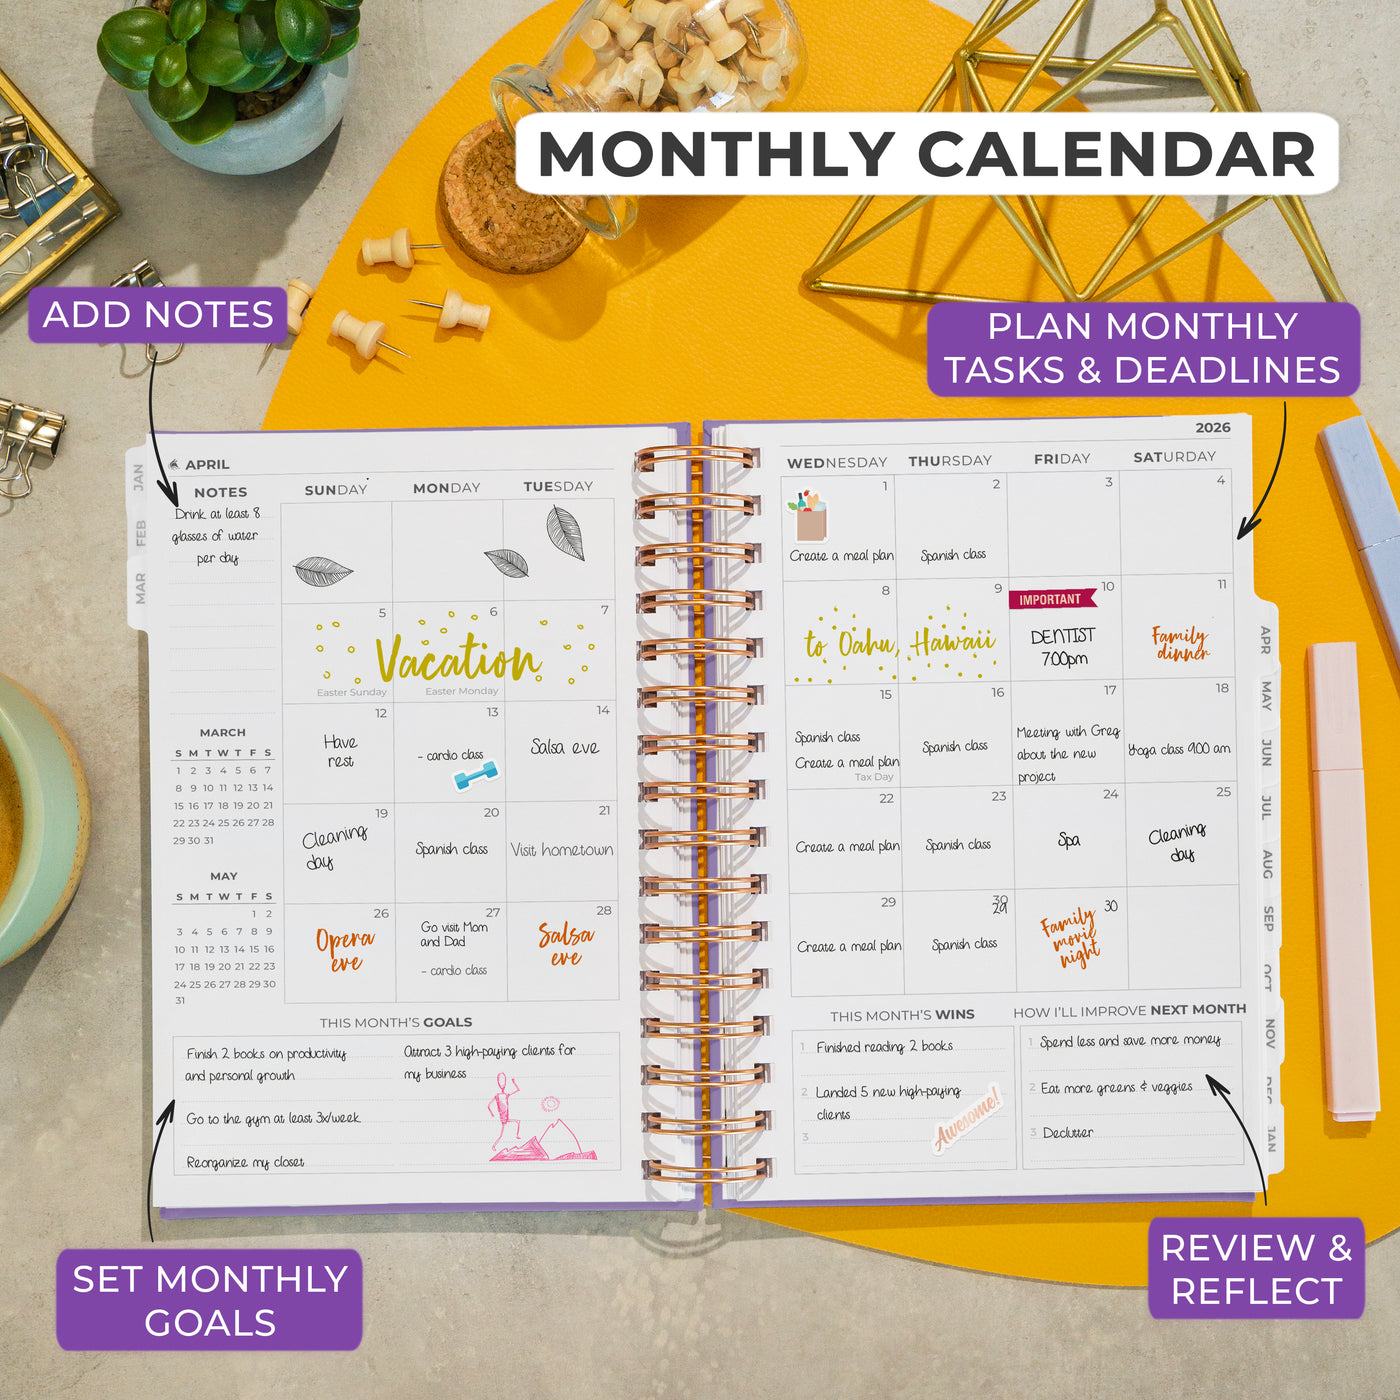 MONTHLY CALENDAR
ADD NOTES
PLAN MONTHLY
TASKS & DEADLINES
APRIL
2026
NOTES
Drink at least 8
glasses of water
per day
SUNDAY MONDAY TUESDAY WEDNESDAY THURSDAY FRIDAY SATURDAY
1 2 3 4
Create a meal plan
Spanish class
5 6 7 8 9 10 11
Vacation
to Oahu, Hawaii
Easter Sunday
Easter Monday
IMPORTANT
DENTIST
7:00pm
Family
dinner
12 13 14 15 16 17 18
Have
rest
- cardio class
Salsa eve
Spanish class
Create a meal plan
Tax Day
Spanish class
Meeting with Greg
about the new
project
Yoga class 9:00 am
19 20 21 22 23 24 25
Cleaning
day
Spanish class
Visit hometown
Create a meal plan
Spanish class
Spa
Cleaning
day
26 27 28 29 30
29
30
Opera
eve
Go visit Mom
and Dad
- cardio class
Salsa
eve
Create a meal plan
Spanish class
Family
movie
night
MARCH
S M T W T F S
1 2 3 4 5 6 7
8 9 10 11 12 13 14
15 16 17 18 19 20 21
22 23 24 25 26 27 28
29 30 31
MAY
S M T W T F S
1 2
3 4 5 6 7 8 9
10 11 12 13 14 15 16
17 18 19 20 21 22 23
24 25 26 27 28 29 30
31
THIS MONTH'S GOALS
Finish 2 books on productivity
and personal growth
Go to the gym at least 3x/week
Reorganize my closet
Attract 3 high-paying clients for
my business
THIS MONTH'S WINS
1 Finished reading 2 books
2 Landed 5 new high-paying
clients
3
Awesome!
HOW I'LL IMPROVE NEXT MONTH
1 Spend less and save more money
2 Eat more greens & veggies
3 Declutter
JAN
FEB
MAR
APR
MAY
JUN
JUL
AUG
SEP
OCT
NOV
DEC
JAN
SET MONTHLY
GOALS
REVIEW &
REFLECT